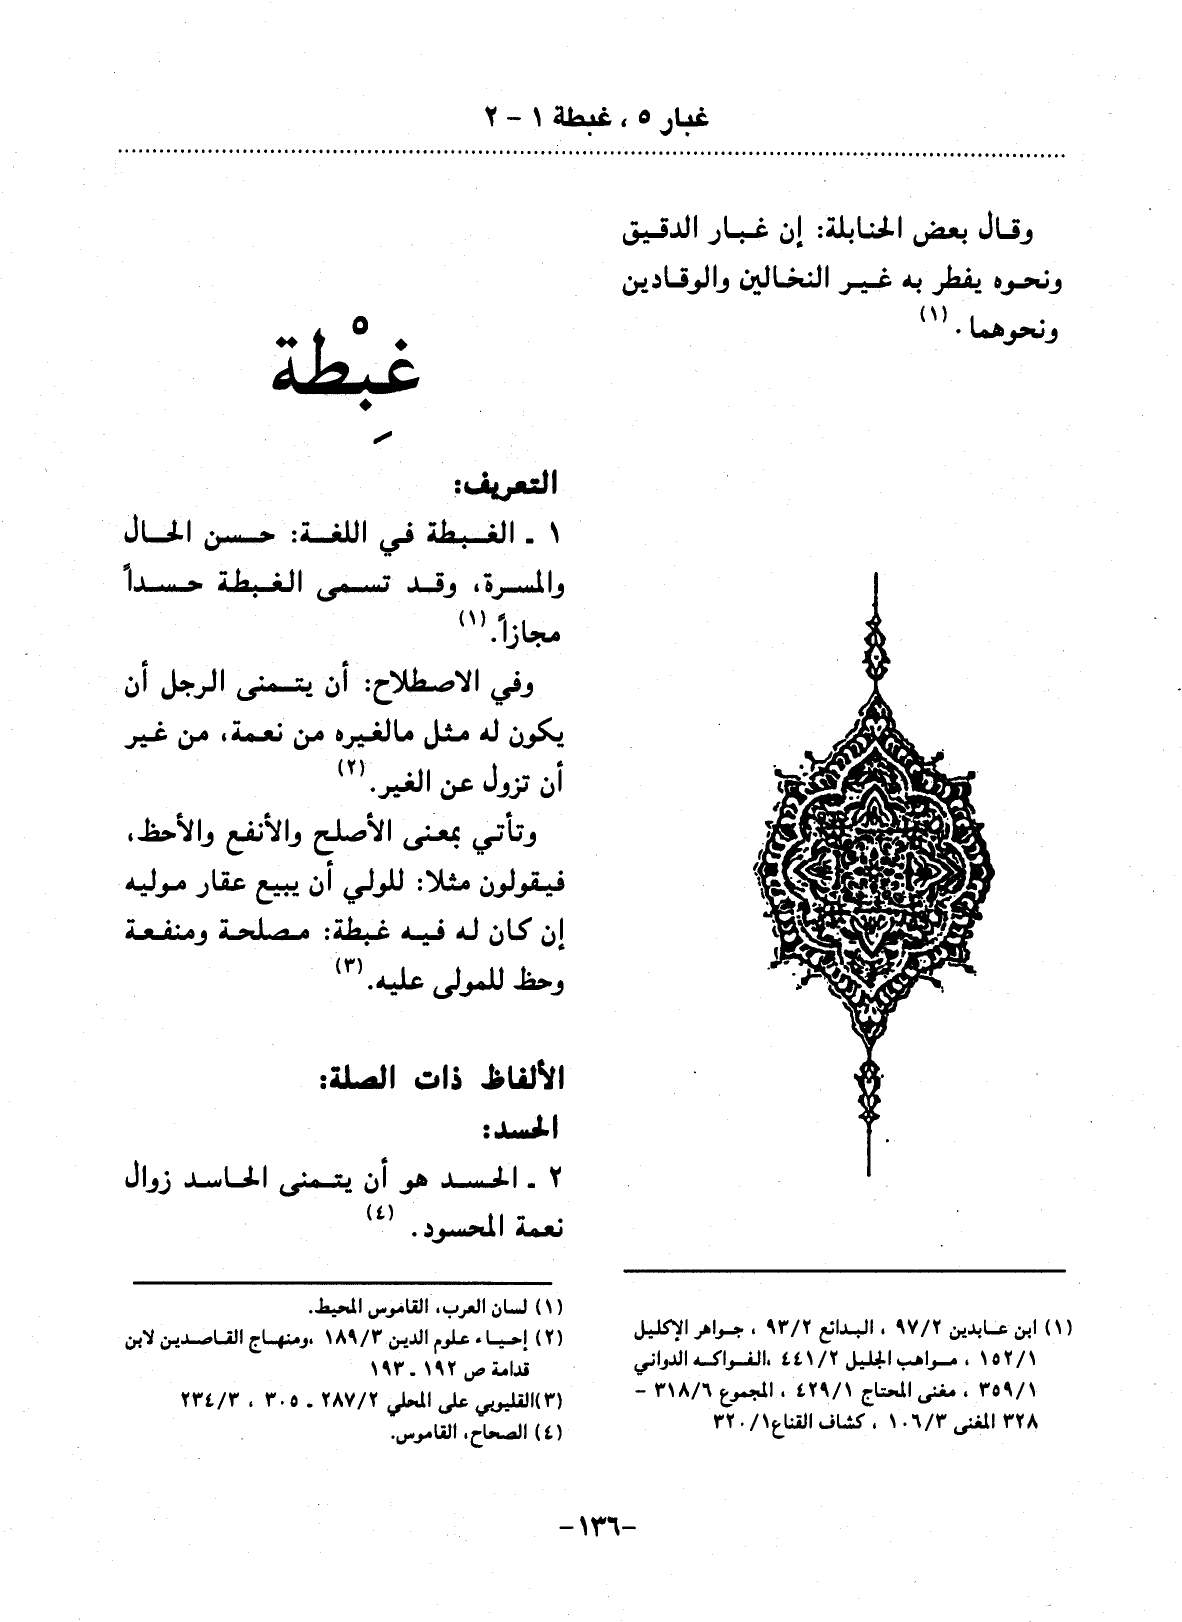 غبار ٥ ، غبطة ١ - ٢
وقال بعض الحنابلة: إن غبار الدقيق
ونحوه يفطر به غير النخالين والوقادين
ونحوهما . (١)
(١) ابن عابدين ٩٧/٢ ، البدائع ٩٣/٢ ، جواهر الإكليل
١٥٢/١ ، مواهب الجليل ٤٤١/٢ ،الفواكه الدواني
٣٥٩/١ ، مغنى المحتاج ٤٢٩/١ ، المجموع ٣١٨/٦ -
٣٢٨ المغنى ١٠٦/٣ ، كشاف القناع٣٢٠/١
غبِطْة
التعريف:
١ - الغبطة في اللغة: حسن الحال
والمسرة، وقد تسمى الغبطة حسداً
مجازاً.(١)
وفي الاصطلاح: أن يتمنى الرجل أن
يكون له مثل مالغيره من نعمة، من غير
أن تزول عن الغير.(٢)
وتأتي بمعنى الأصلح والأنفع والأحظ،
فيقولون مثلا: للولي أن يبيع عقار موليه
إن كان له فيه غبطة: مصلحة ومنفعة
وحظ للمولى عليه.(٣)
الألفاظ ذات الصلة:
الحسد:
٢ - الحسد هو أن يتمنى الحاسد زوال
نعمة المحسود . (٤)
(١) لسان العرب، القاموس المحيط.
(٢) إحياء علوم الدين ١٨٩/٣ ،ومنهاج القاصدين لابن
قدامة ص ١٩٢ - ١٩٣
(٣)القليوبي على المحلي ٢٨٧/٢ - ٣٠٥ ، ٢٣٤/٣
(٤) الصحاح، القاموس.
-١٣٦-